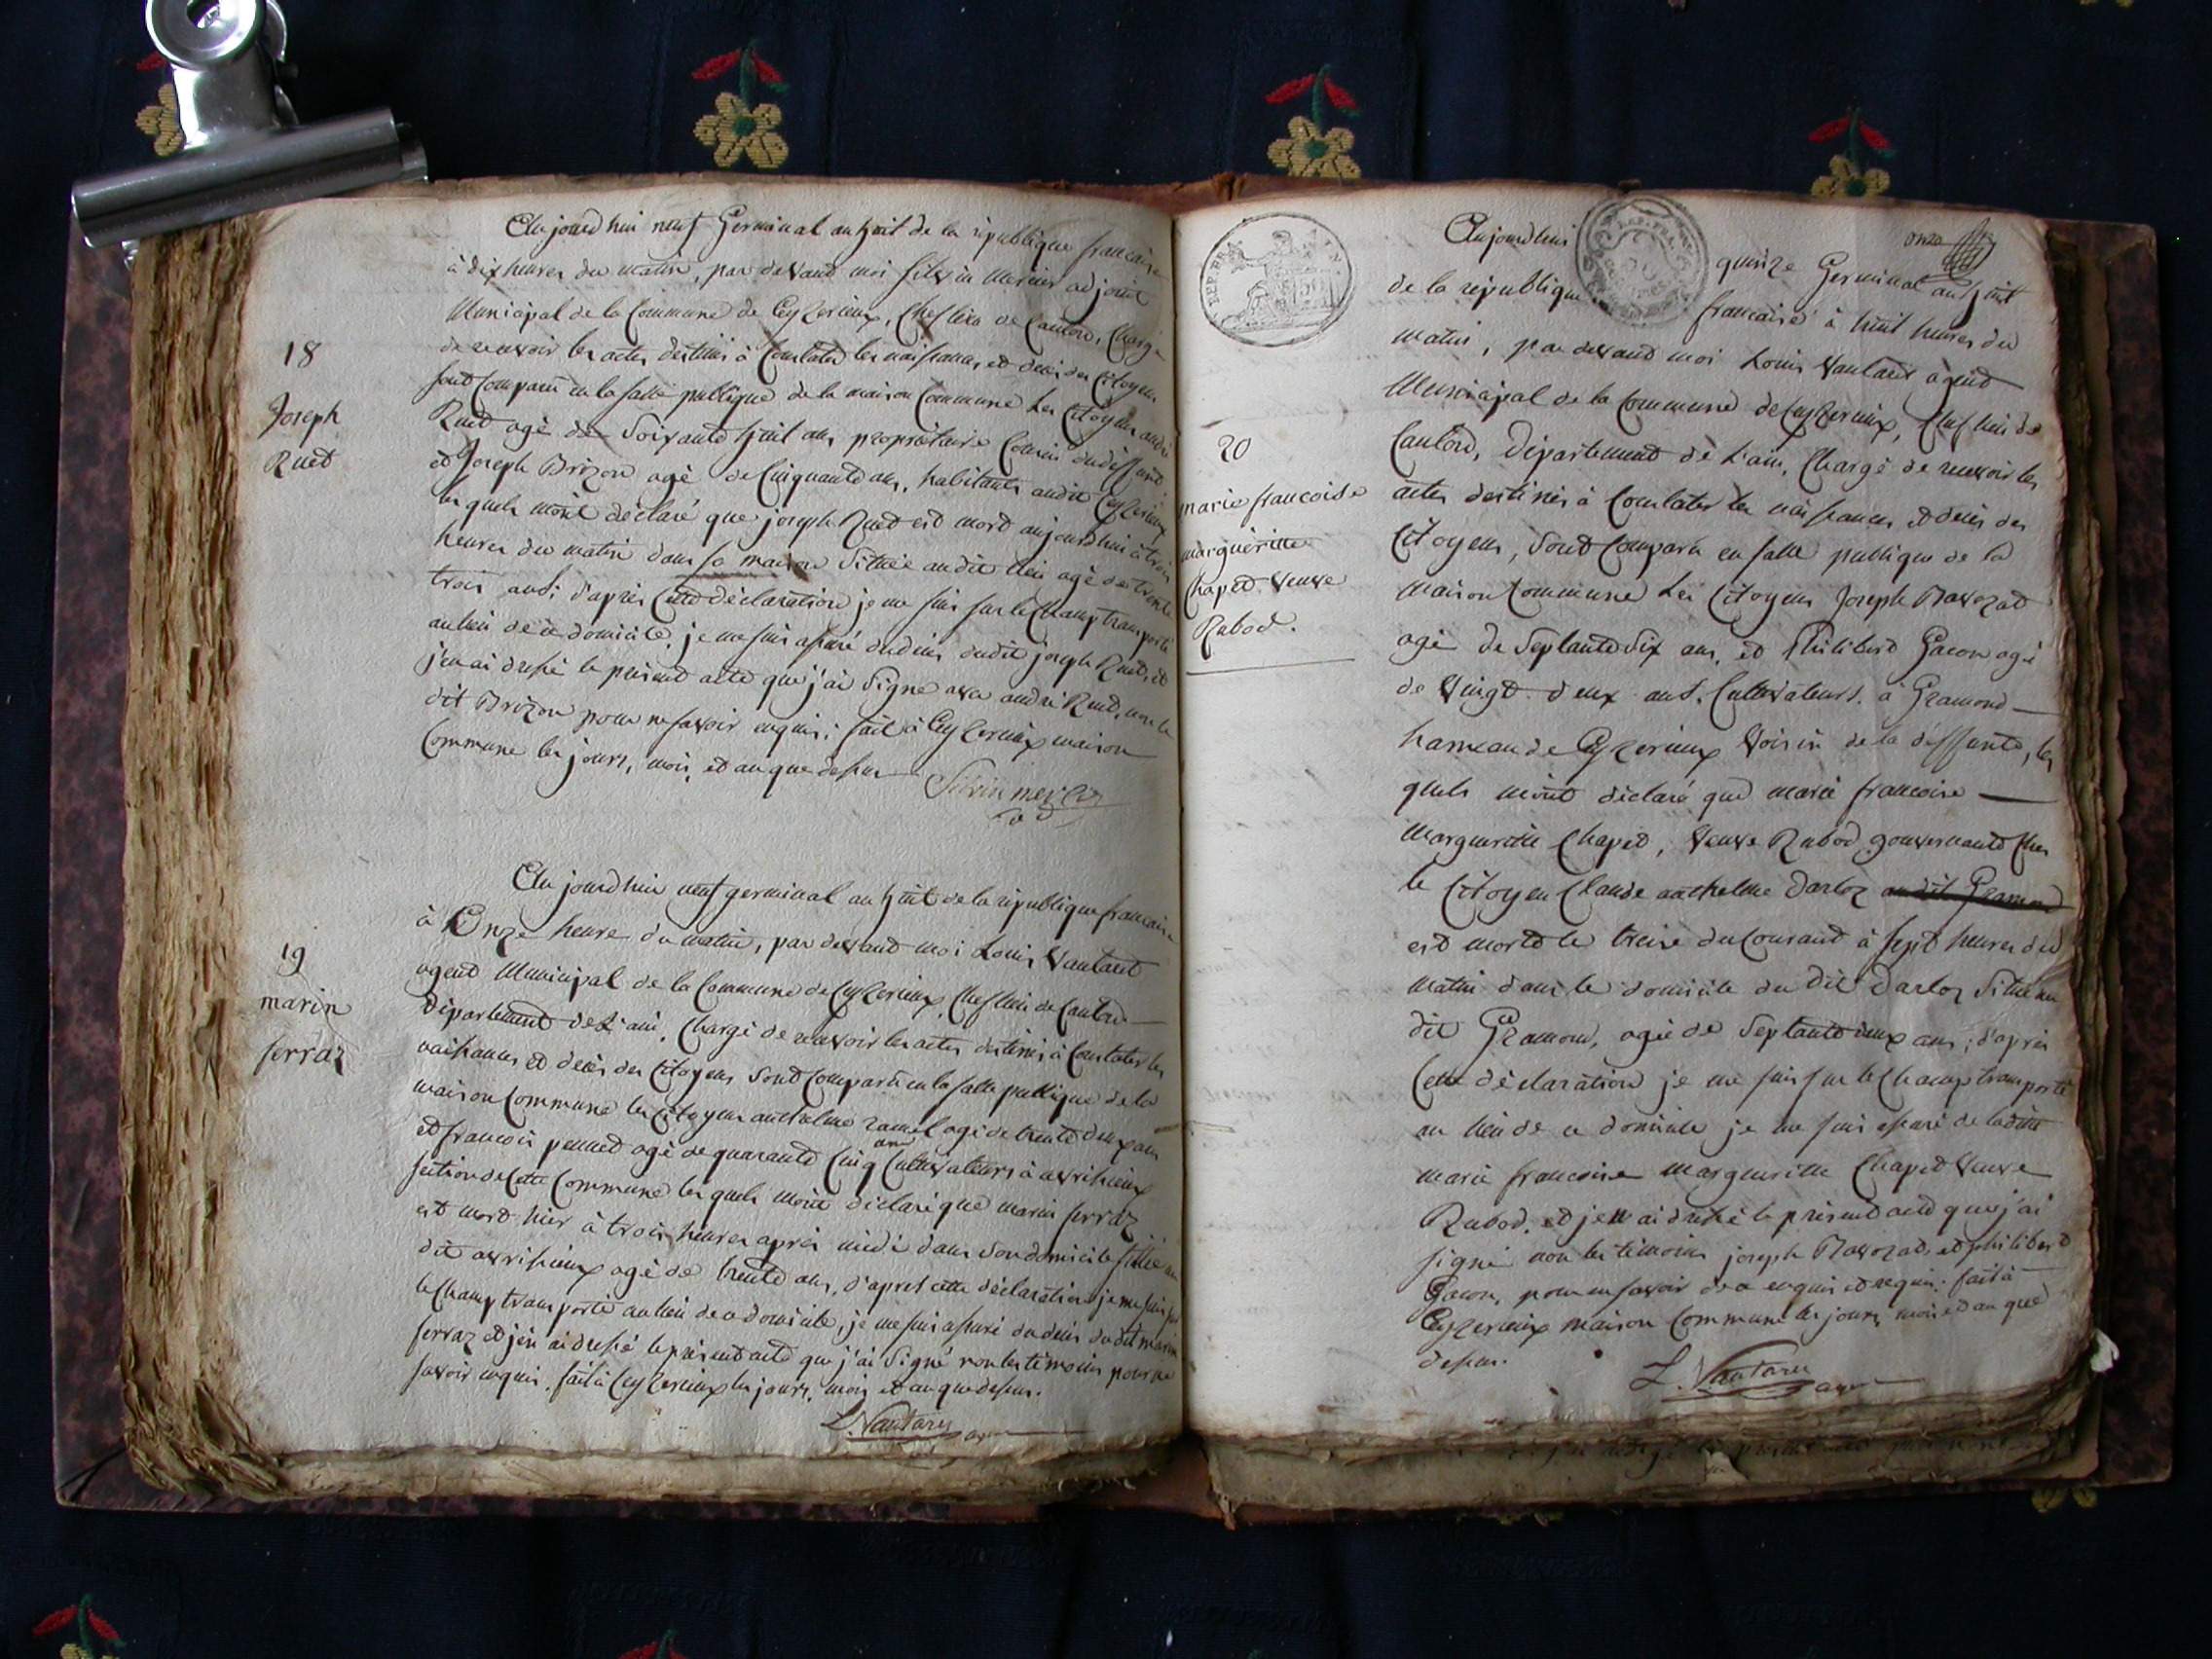 Aujourdhui neuf Germinal an huit de la république francaise
à dix heures du matin, par devant moi Silvin mercier adjoint
Municipal de la Commune de Ceyzerieux, Chef lieu de Canton, Chargé
de recevoir les actes destinés à Constater les naissances, et décès des Citoyens
sont Comparu en la salle publique de la maison Commune Les Citoyens andré
18
Joseph
Ruet
Ruet agé de Soixante huit ans propriétaire Cousin du deffunt
et Joseph Brizon agé de Cinquante ans, habitants audit Ceyzerieux
les quels m'ont déclaré que joseph Ruet est mort aujourdhui à trois
heures du matin dans sa maison Située audit lieu agé de trente
trois ans; d'après Cette déclaration je me suis sur le Champ transporté
au lieu de ce domicile, je me suis assuré du décès dudit joseph Ruet, et
j'en ai dressé le présent acte que j'ai Signé avec andré Ruet, non le
dit Brizon pour ne savoir enquis; fait à Ceyzerieux maison
Commune les jours, mois, et an que dessus
Silvin mercier
ad
Aujourdhui neuf germinal an huit de la république francaise
à Onze heure du matin, par devant moi Louis Vantaret
19
marin
ferraz
agent Municipal de la Commune de Ceyzerieux, Chef lieu de Canton
Département de L'ain, Chargé de recevoir les actes destinés à Constater les
naissances et décès des Citoyens Sont Comparu en la salle publique de la
maison Commune les Citoyens anthelme ramel agé de trente deux ans
et francois pennet agé de quarante Cinq ans Cultivateurs à avrissieux
section de Cette Commune les quels m'ont déclaré que marin ferraz
est mort hier à trois heures après midi dans Son domicile situé au
dit avrissieux agé de trente ans, d'apres cette déclaration je me suis sur
le Champ transporté au lieu de ce domicile, je me suis assuré du décès du dit marin
ferraz et j'en ai dressé le présent acte que j'ai Signé non les témoins pour ne
savoir enquis, fait à Ceyzerieux les jours, mois et an que dessus.
L. Vantaret agent
onze
Aujourdhui quinze Germinal an huit
de la république francaise à huit heures du
matin, par devant moi Louis Vantaret agent
Municipal de la Commune de Ceyzerieux, Chef lieu de
Canton, Département de L'ain, Chargé de recevoir les
20
marie francoise
marguéritte
Chapet Veuve
Rubod.
actes destinés à Constater les naissances et décès des
Citoyens, Sont Comparu en salle publique de la
maison Commune Les Citoyens Joseph Bavozat
agé de Septante Six ans, et Philibert Gacon agé
de Vingt deux ans. Cultivateurs. à Gramond
hameau de Ceyzerieux Voisin de la deffunte, les
quels m'ont déclaré que marie francoise
Margueritte Chapet, Veuve Rubod gouvernante Chez
le Citoyen Claude anthelme Darloz audit Gramond
est morte le treize du Courant à Sept heures du
matin dans le domicile du Dit Darloz Situé au
dit Gramond, agée de Septante deux ans; d'après
Cette déclaration je me suis sur le Champ transporté
au lieu de ce domicile je me suis assuré de ladite
marie francoise Margueritte Chapet Veuve
Rubod, et j'en ai dressé le présent acte que j'ai
signé non les témoins joseph Bavozat, et philibert
Gacon, pour ne savoir de ce enquis et requis. fait à
Ceyzerieux maison Commune les jours, mois et an que
dessus.
L. Vantaret agent